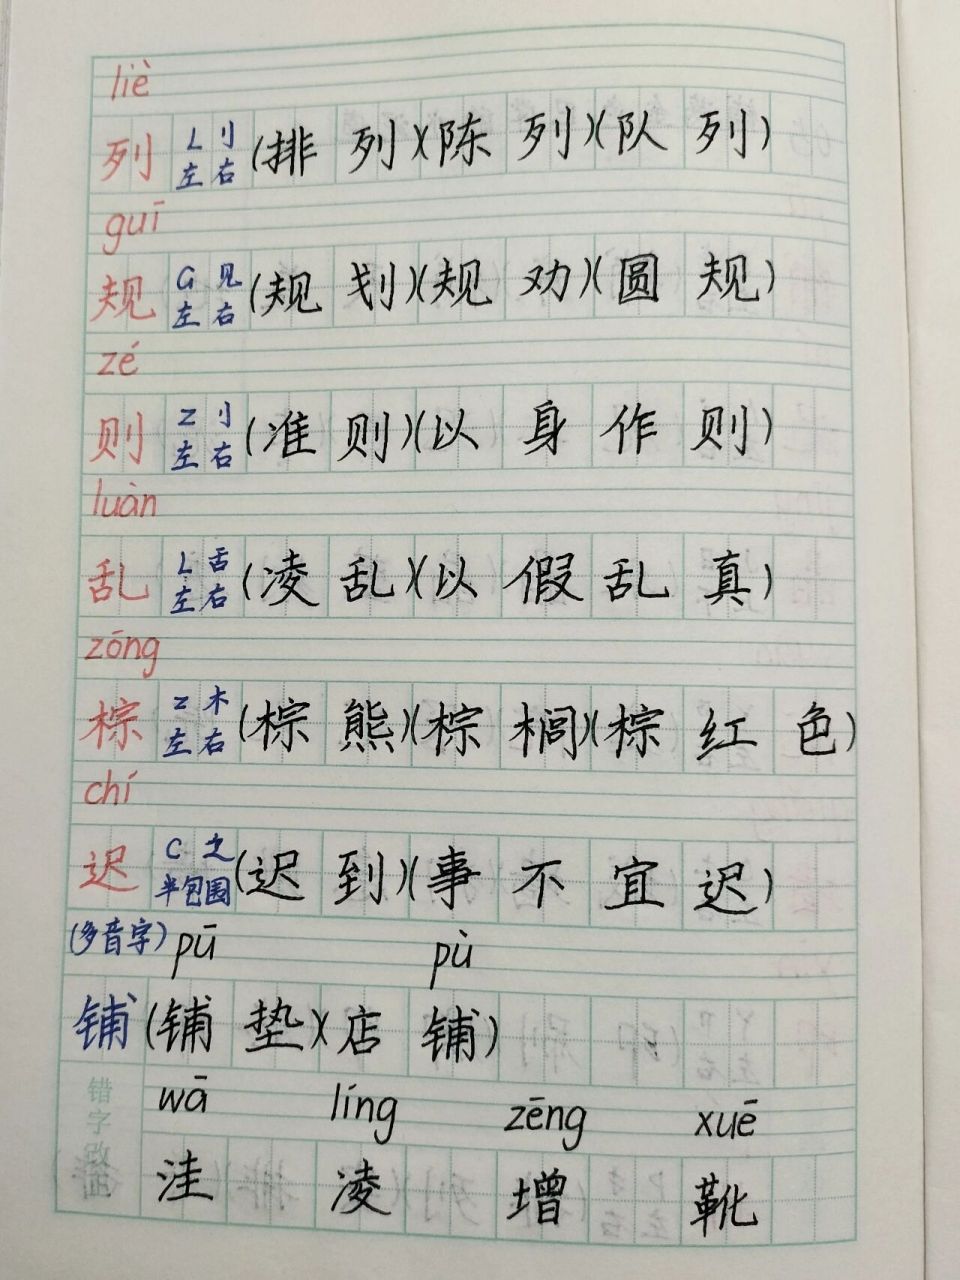 liè
列 L 刂 左右 (排列)(陈列)(队列)
guī
规 G 见 左右 (规划)(规劝)(圆规)
zé
则 Z 刂 左右 (准则)(以身作则)
luàn
乱 L 舌 左右 (凌乱)(以假乱真)
zōng
棕 Z 木 左右 (棕熊)(棕榈)(棕红色)
chí
迟 C 辶 半包围 (迟到)(事不宜迟)
(多音字) pū pù
铺 (铺垫)(店铺)
wā líng zēng xuē
错字改正 洼 凌 增 靴